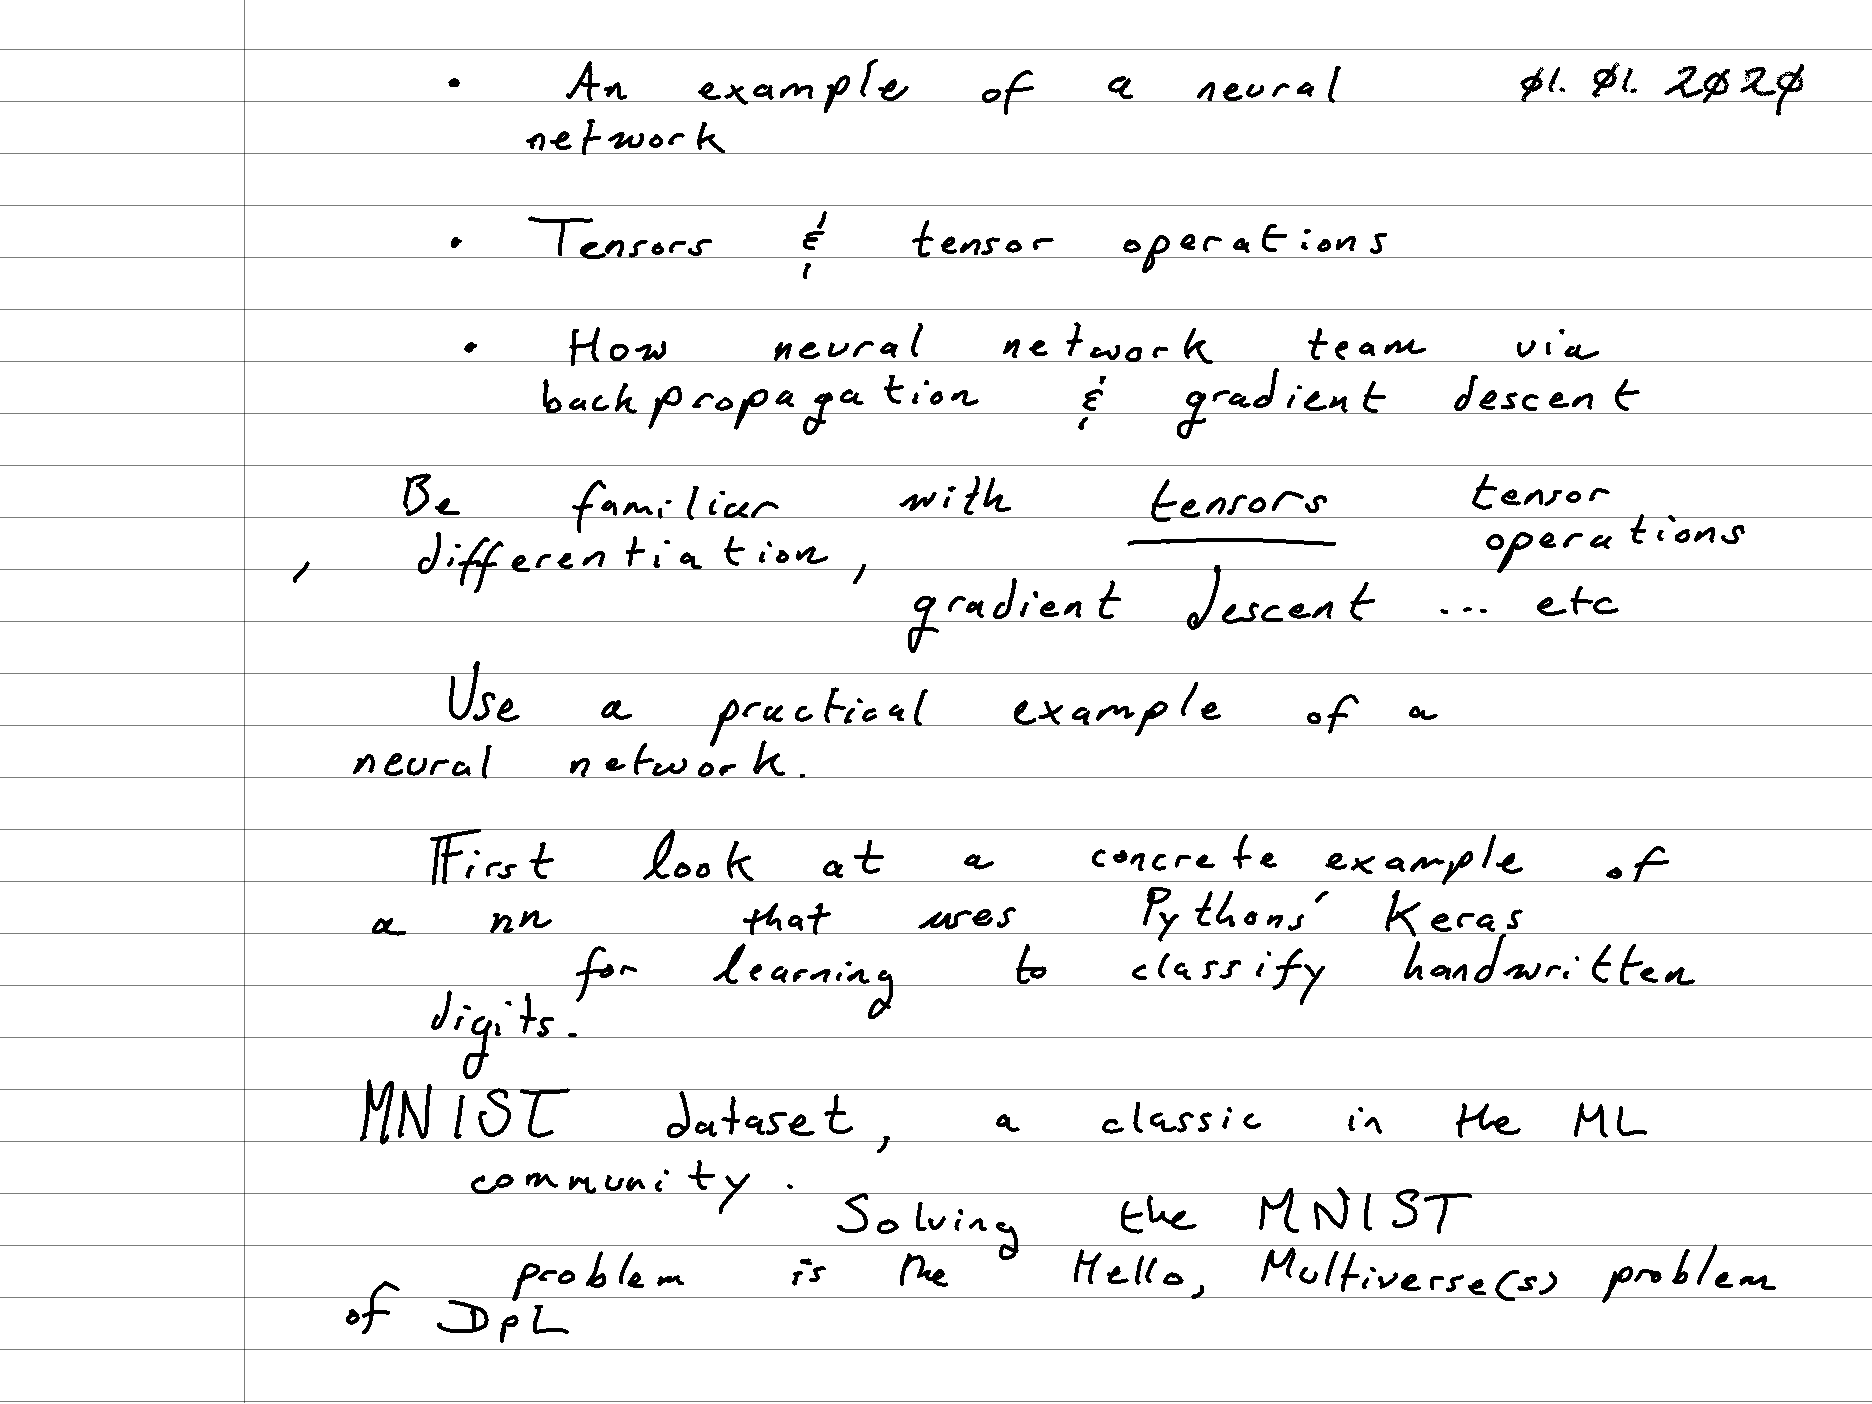 • An example of a neural 01.01.2020
network
• Tensors & tensor operations
• How neural network team via
backpropagation & gradient descent
Be familiar with tensors tensor
operations
, differentiation,
gradient descent ... etc
Use a practical example of a
neural network.
First look at a concrete example of
a nn that uses Pythons' Keras
for learning to classify handwritten
digits.
MNIST dataset, a classic in the ML
community.
Solving the MNIST
problem is the Hello, Multiverse(s) problem
of DpL